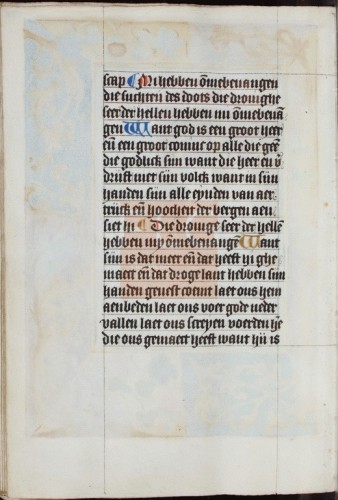 scap Mi hebben õmbevangen
die suchten des doots die dronighe
seer der hellen hebben mi õmbeuã
gen Want god is een groot heer
eñ een groot coninc op alle die gee
die godlick sun want die heer en v̄
druft niet sijn volck want in sijn
handen sijn alle eynden van aer
trijck eñ hoocheit der bergen aen
siet hi Die droinge seer der hellẽ
hebben my õmbeuangẽ Want
sijn is dat meer eñ dat heeft hi ghe
maect eñ dat droge lant hebben sijn
handen geuest coemt laet ons hem
aenbeden laet ons voer gode neder
vallen laet ons screyen voerden hẽ
die ons gemaect heeft want hi is